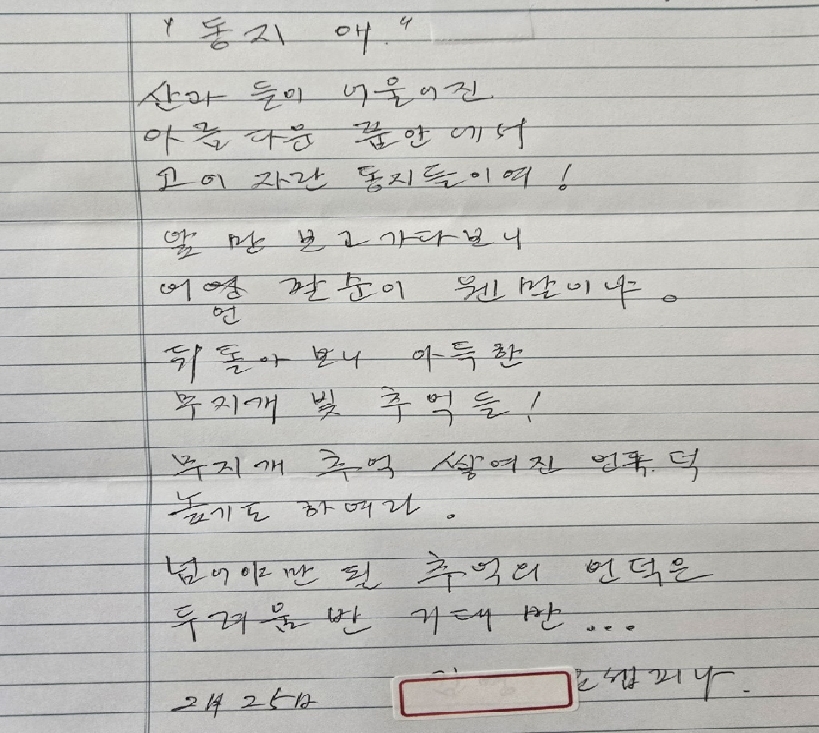 "동지 애."
산과 들이 어울어진
아름다운 품안에서
고이 자란 동지들이여!
앞만 보고 가다보니
어영 팔순이 웬말이냐.
언
뒤돌아보니 아득한
무지개 빛 추억들!
무지개 추억 쌓여진 언덕
높기도 하여라.
넘어야만 될 추억의 언덕은
두려움반 기대 반...
2月 25日